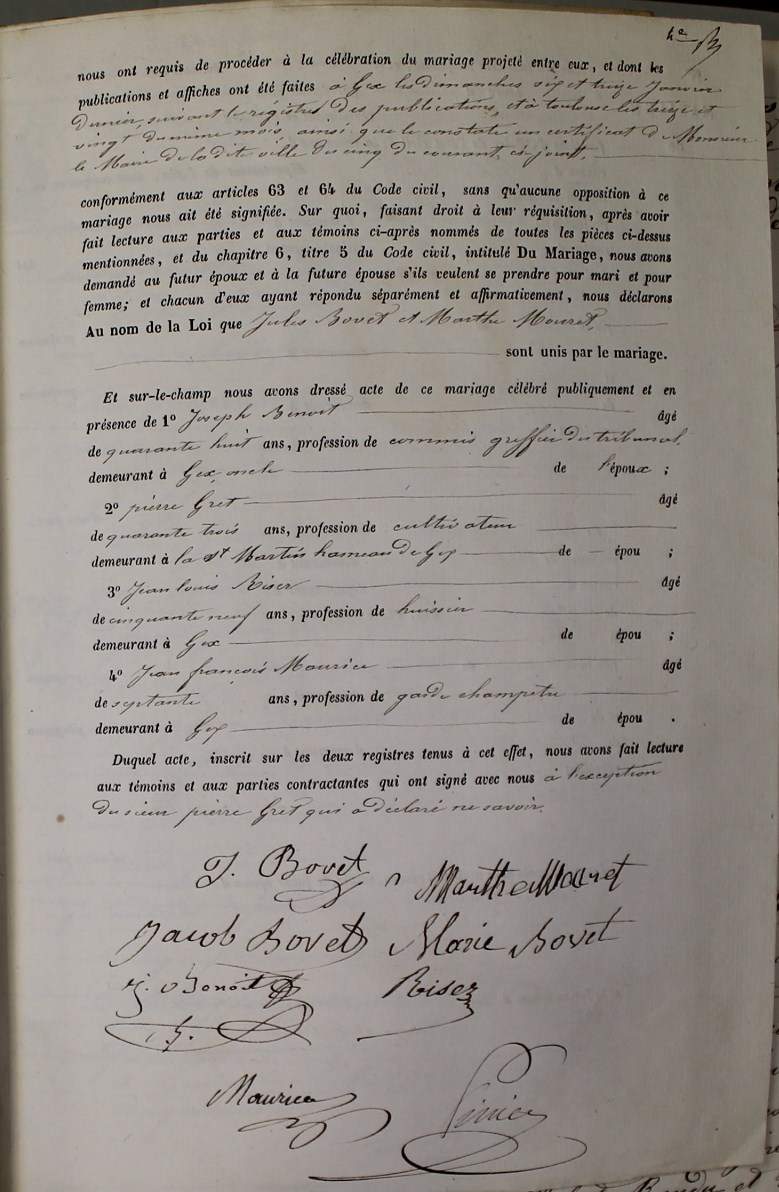 nous ont requis de procéder à la célébration du mariage projeté entre eux, et dont les
publications et affiches ont été faites à Gex les dimanches six et treize Janvier
Dernier, suivant le régistre des publications, et à toulouse les treize et
vingt du même mois, ainsi que le constate un certificat de Monsieur
le Maire de la dite ville du cinq du courant, ci-joint,
conformément aux articles 63 et 64 du Code civil, sans qu'aucune opposition à ce
mariage nous ait été signifiée. Sur quoi, faisant droit à leur réquisition, après avoir
fait lecture aux parties et aux témoins ci-après nommés de toutes les pièces ci-dessus
mentionnées, et du chapitre 6, titre 5 du Code civil, intitulé Du Mariage, nous avons
demandé au futur époux et à la future épouse s'ils veulent se prendre pour mari et pour
femme; et chacun d'eux ayant répondu séparément et affirmativement, nous déclarons
Au nom de la Loi que Jules Bovet et Marthe Mouret,
sont unis par le mariage.
Et sur-le-champ nous avons dressé acte de ce mariage célébré publiquement et en
présence de 1º Joseph Benoit âgé
de quarante huit ans, profession de commis greffier du tribunal,
demeurant à Gex, oncle de l'époux ;
2º pierre Gret âgé
de quarante trois ans, profession de cultivateur
demeurant à la St Martin hameau de Gex de épou ;
3º Jean louis Riser âgé
de cinquante neuf ans, profession de huissier
demeurant à Gex de épou ;
4º Jean françois Maurice âgé
de septante ans, profession de garde champetre
demeurant à Gex de épou .
Duquel acte, inscrit sur les deux registres tenus à cet effet, nous avons fait lecture
aux témoins et aux parties contractantes qui ont signé avec nous à l'exception
du sieur pierre Gret qui a déclaré ne savoir.
J. Bovet Marthe Mouret
Jacob Bovet Marie Bovet
J. Benoit Riser
Maurice